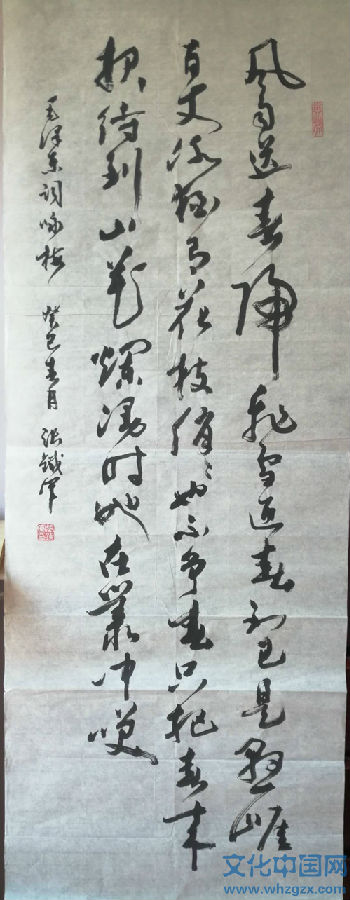 风雨送春归飞雪迎春到已是悬崖
百丈冰犹有花枝俏々也不争春只把春来
报待到山花爛漫时她在叢中笑
毛泽东词咏梅 癸巳春月 张
文化中国网
www.whzgzx.com